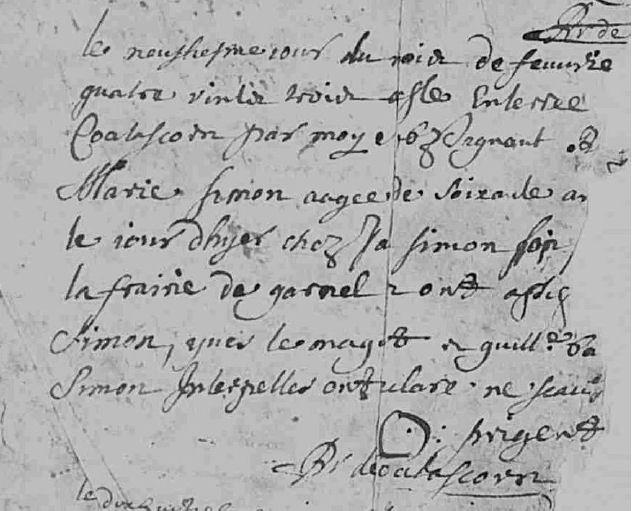 Rr de
le neufhiesme iour du mois de feuurie
quatre vinte trois a este Enterre
Coatascorn par moy soubzsignant et
Marie simon aagee de soixante an
le iour dhyer chez Ja simon son
la frairie de garnel ont assis
Simon, yues le magot et guill
Simon Interpelles ont declare ne scauoi
: prigent
Rr de coatascorn
le